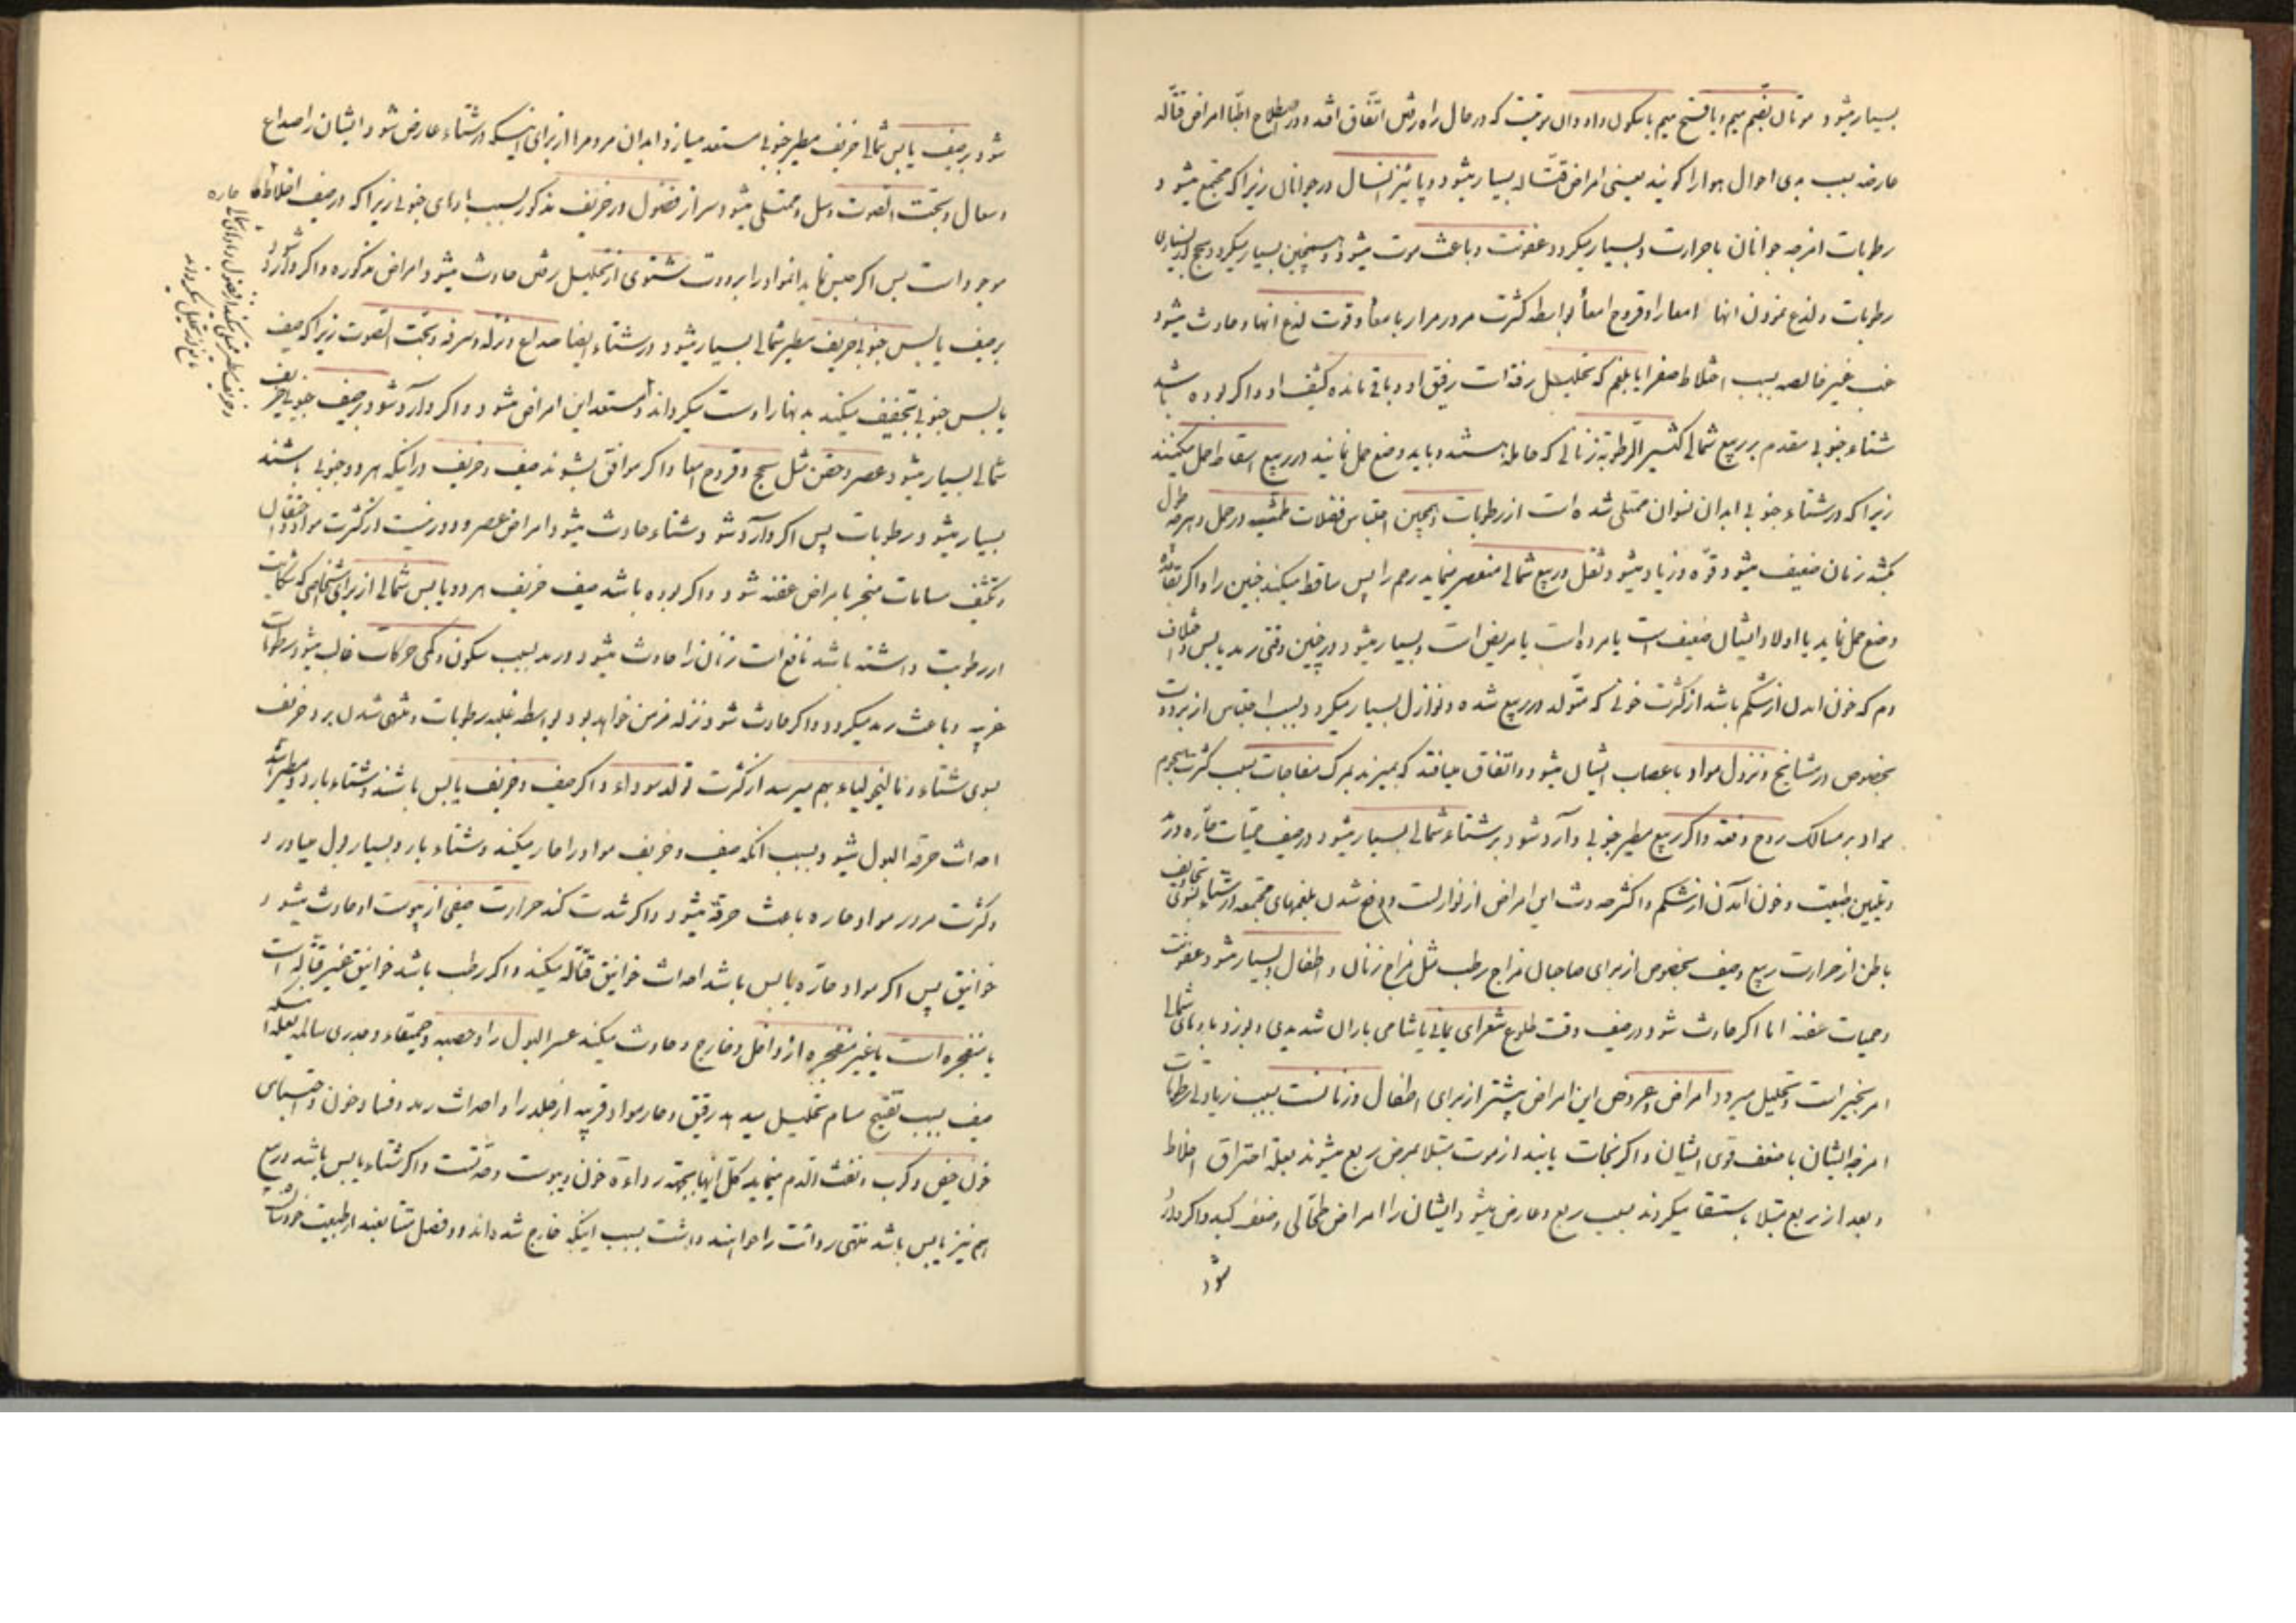 بسیار میشود موتان بضم میم و یا فتح میم با سکون واو وان موتیست که در حال راه رفتن اتفاق افتد و در اصطلاح اطبا امراض قتاله
عارضه بسبب بدی احوال هوا را کویند یعنی امراض قتاله بسیار میشود در پائیز انسال در جوانان زیرا که مجتمع میشود
رطوبات امزجه جوانان با حرارت و بسیار میکردد عفونت و باعث موت میشود و همچنین بسیار میکردد سحج
رطوبات و لذع نمودن انها امعا را و قروح امعا بواسطه کثرت مرور مرار بامعا و قوت لذع انها و حادث میشود
غب غیر خالصه بسبب اختلاط صفرا با بلغم که تحلیل رفته است رقیق او و باقی مانده کثیف او و اکر بوده باشد
شتاء جنوبی مقدم بر ربیع شمالی کثیر الرطوبة زنانی که حامله هستند و باید وضع حمل نمایند در ربیع اسقاط حمل میکنند
زیرا که در شتاء جنوبی ابدان نسوان ممتلی شده است از رطوبات و همچنین احتباس فضلات طمثیه در حمل و هر چه طول
بکشد زنان ضعیف میشود قوه و زیاد میشود ثقل و ربیع شمالی منعصر مینماید رحم را پس ساقط میکند جنین را و اکر
وضع حمل نماید یا اولاد ایشان ضعیف است یا مرده است یا مریض است و بسیار میشود در چنین وقتی رمد یابس و اختلاف
دم که خون امدن از شکم باشد از کثرت خونی که متولد در ربیع شده و نوازل بسیار میکردد بسبب احتباس از برودت
بخصوص در مشایخ و نزول مواد باعصاب ایشان میشود و اتفاق میافتد که بمیرند بمرک مفاجات بسبب کثرت هجوم
مواد بر مسالک روح دفعة و اکر ربیع مطیر جنوبی وارد شود بر شتاء شمالی بسیار میشود در صیف حمیات حاره و رمد
و تلیین طبیعت و خون آمدن از شکم و اکثر حدوث این امراض از نوازلست و دفع شدن بلغمهای مجتمعه در شتاء بتجاویف
باطن از حرارت ربیع و صیف بخصوص از برای صاحبان مزاج رطب مثل مزاج زنان و اطفال و بسیار میشود عفونت
و حمیات عفنه اما اکر حادث شود در صیف وقت طلوع شعرای یمانی یا شامی باران شدیدی و بوزد بادهای شمالی
امر بخیر است و تحلیل میرود امراض و عروض این امراض بیشتر از برای اطفال و زنانست بسبب زیادتی رطوبات
امزجه ایشان با ضعف قوی ایشان و اکر نجات یابند از موت مبتلا بمرض ربع میشوند بعلة احتراق اخلاط
و بعد از ربع مبتلا باستسقا میکردند بسبب ربع و عارض میشود ایشان را امراض طحالی و ضعف کبد و اکر وارد
شود
شود بر صیف یابس شمالی خریف مطیر جنوبی مستعد میسازد ابدان مردم را از برای اینکه در شتاء عارض شود ایشان را صداع
و سعال و بحت الصوت و سل و ممتلی میشود سر از فضول در خریف مذکور بسبب بادهای جنوبی زیرا که در صیف اخلاط حاره
موجود است پس اکر حبس نماید انمواد را برودت شتوی از تحلیل رفتن حادث میشود امراض مذکوره و اکر وارد شود
بر صیف یابس جنوبی خریف مطیر شمالی بسیار میشود در شتاء ایضا صداع و نزله و سرفه و بحت الصوت زیرا که صیف
یابس جنوبی تخفیف میکند بدنها را و سست میکرداند و مستعد این امراض میشود و اکر وارد شود بر صیف جنوبی خریف
شمالی بسیار میشود عصر و حقن مثل سحج و قروح امعا و اکر موافق بشوند صیف و خریف در اینکه هر دو جنوبی باشند
بسیار میشود رطوبات پس اکر وارد شود شتاء حادث میشود امراض عصر و دور نیست از کثرت مواد و احتقان
و تکثف مسامات منجر بامراض عفنه شود و اکر بوده باشد صیف خریف هر دو یابس شمالی از برای اشخاصی که شکایت
از رطوبت داشته باشد نافع است زنان را حادث میشود رمد بسبب سکون و کمی حرکات غالب میشود رطوبات
غریبه و باعث رمد میکردد و اکر حادث شود نزله مزمن خواهد بود بواسطه غلبه رطوبات و منتهی شدن برد خریف
بسوی شتاء و مالیخولیاء بهم میرسد از کثرت تولد سوداء و اکر صیف و خریف یابس باشند و شتاء بارد و مطیر باشد
احداث حرقة البول شود بسبب انکه صیف و خریف مواد را حار میکند و شتاء بارد بسیار بول میاورد
و کثرت مرور مواد حاره باعث حرقة میشود و اکر شدت کند حرارت صیفی از یبوست او حادث میشود
خوانیق پس اکر مواد حاره یابس باشد احداث خوانیق قتاله میکند و اکر رطب باشد خوانیق غیر قتاله است
یا منفجره است یا غیر منفجره از داخل و خارج و حادث میکند عسر البول را و حصبه و حمیقاء و جدری سالمه بعلة انکه
صیف بسبب تفتیح مسام تحلیل میدهد رقیق و حار مواد قریبه از جلد را و احداث رمد و فساد خون و احتباس
خون حیض و کرب و نفث الدم مینماید کل اینها بجهة رداءة خون و یبوست و حدتست و اکر شتاء یابس باشد و ربیع
هم نیز یابس باشد منتهی ردائت را هوا بهمرسانده است بسبب اینکه خارج شده اند دو فصل متتابعه از طبیعت خودشان
و خریف مطیر ممتلی میکند از فضول و بادهای شمالی
مانع از تحلیل میکردند